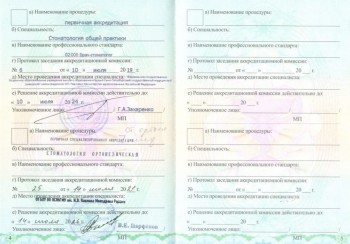 а) Наименование процедуры:
первичная аккредитация
б) Специальность:
Стоматология общей практики
в) Наименование профессионального стандарта:
г) Протокол заседания аккредитационной комиссии
№ 6 от « 10 » июля 2019 г.
д) Место проведения аккредитации специалиста
е) Решение аккредитационной комиссии действительно до
« 10 » июля 2024 г.
Уполномоченное лицо:
МП
а) Наименование процедуры:
б) Специальность:
СТОМАТОЛОГИЯ ОРТОПЕДИЧЕСКАЯ
в) Наименование профессионального стандарта:
г) Протокол заседания аккредитационной комиссии
д) Место проведения аккредитации специалиста
е) Решение аккредитационной комиссии действительно до
Уполномоченное лицо:
МП
а) Наименование процедуры:
б) Специальность:
в) Наименование профессионального стандарта:
г) Протокол заседания аккредитационной комиссии
№ от « » 20 г.
д) Место проведения аккредитации специалиста
е) Решение аккредитационной комиссии действительно до
« » 20 г.
Уполномоченное лицо:
МП
а) Наименование процедуры:
б) Специальность:
в) Наименование профессионального стандарта:
г) Протокол заседания аккредитационной комиссии
№ от « » 20 г.
д) Место проведения аккредитации специалиста
е) Решение аккредитационной комиссии действительно до
« » 20 г.
Уполномоченное лицо:
МП